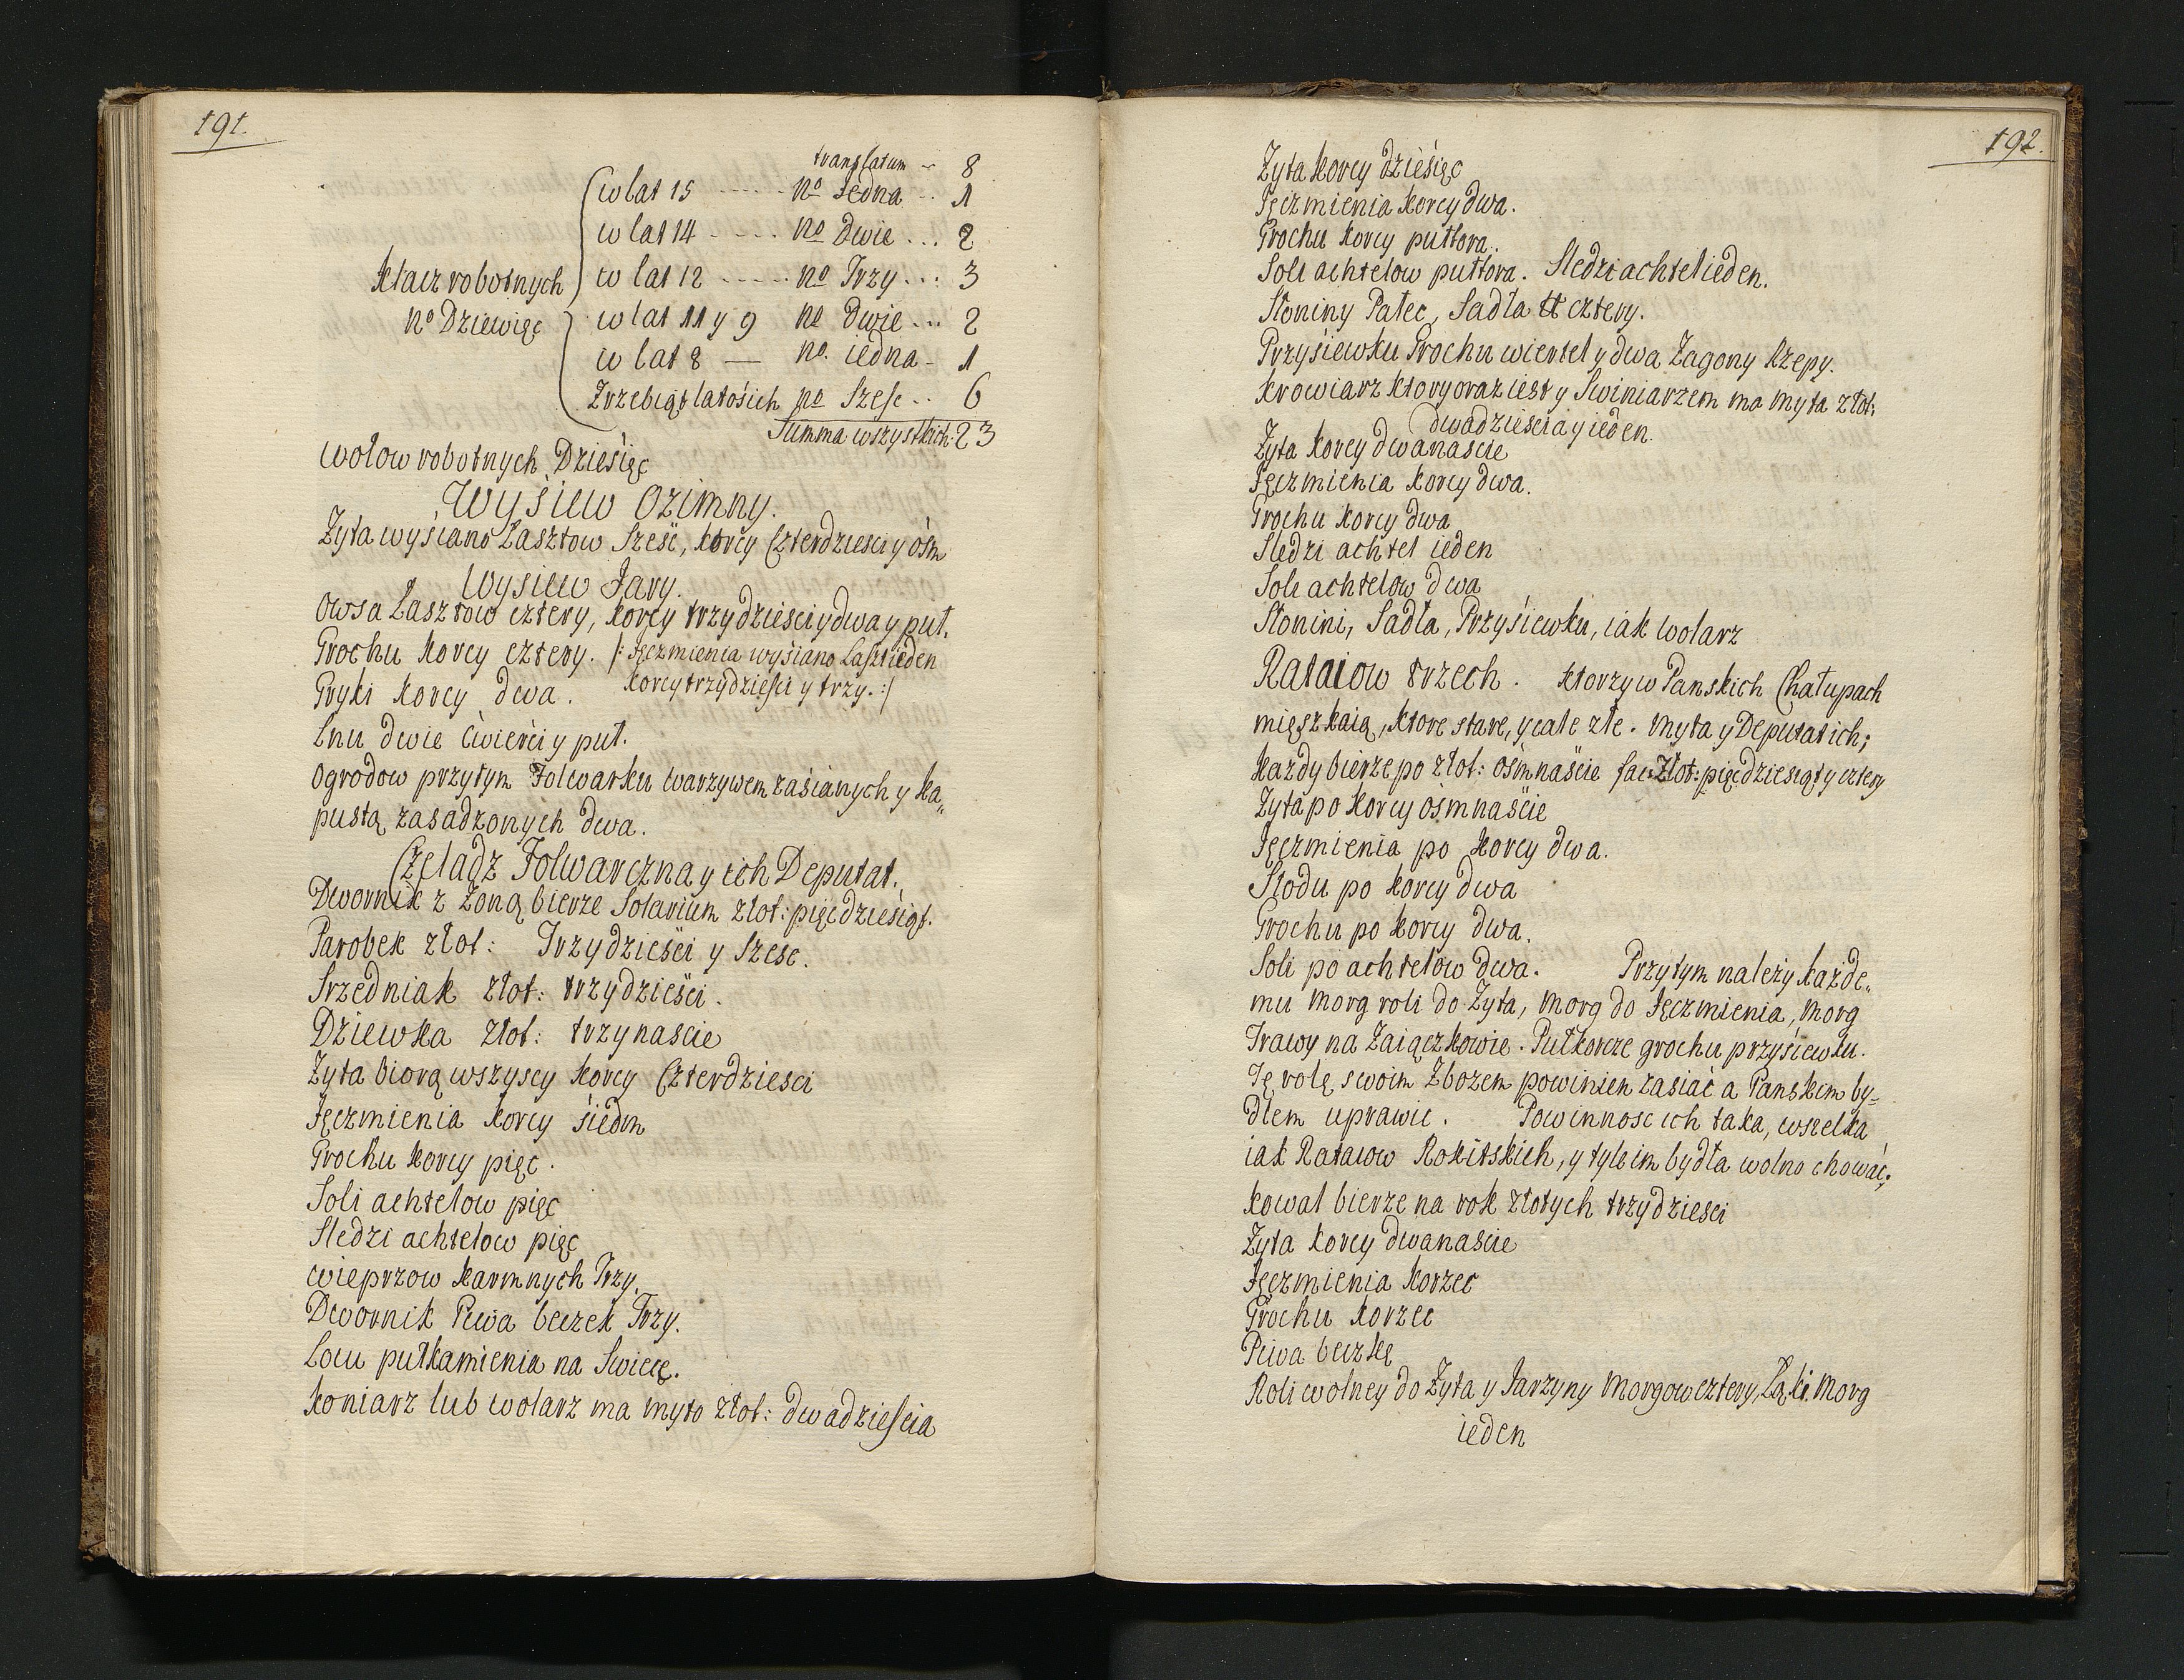 191.
translatum ~ 8
w lat 15 ----- No Jedna .. 1
w lat 14 ---- No Dwie ... 2
Klacz robotnych w lat 12 ----- No Trzy ... 3
No Dziewięc w lat 11 y 9 No Dwie ... 2
w lat 8 — No. iedna - 1
Zrzebiąt latośich No Szesc .. 6
Summa wszystkich: 23
Wołow robotnych Dziesięc
Wyśiew Ozimny.
Zyta wyśiano Łasztow Sześć, korcy Czterdziesci y ośm
Wysiew Jary.
Owsa Łasztow cztery, korcy trzydzieści y dwa y puł.
Grochu Korcy cztery. /: Jęczmienia wyśiano Łaszt ieden
Gryki Korcy dwa. Korcy trzydzieści y trzy. :/
Lnu dwie ćwierći y puł.
Ogrodow przytym Folwarku warzywem zaśianych y ka„
pustą zasadzonych dwa.
Czeladz Folwarczna y ich Deputat.
Dwornik z Zoną bierze Solarium złot: pięcdzieśiąt.
Parobek złot: Trzydzieści y Szesc.
Srzedniak złot: trzydzieści.
Dziewka złot: trzynascie
Zyta biorą wszyscy korcy Czterdziesci
Jęczmienia korcy śiedm
Grochu korcy pięc.
Soli achtelow pięc
Sledzi achtelow pięc
Wieprzow karmnych Trzy.
Dwornik Piwa beczek Trzy.
Łoiu pułkamienia na Swiecę.
Koniarz lub wolarz ma myto złot: dwadziescia
192.
Zyta korcy dzieśięc
Jęczmienia korcy dwa.
Grochu korcy pułtora.
Soli achtelow pułtora. Sledzi achtel ieden.
Słoniny Połec, Sadła tt cztery.
Przyśiewku Grochu wiertel y dwa Zagony Rzepy.
Krowiarz ktory oraz iest y Swiniarzem ma Myta złot:
dwadziescia y ieden.
Zyta korcy dwanascie
Jęczmienia korcy dwa.
Grochu korcy dwa
Sledzi achtel ieden
Soli achtelow dwa
Słonini, Sadła, Przyśiewku, iak wolarz
Rataiow trzech. Ktorzy w Panskich Chałupach
mięszkaią, ktore stare, y cale złe. Myta y Deputat ich;
każdy bierze po złot: ośmnaście fac: Złot: pięcdziesiąt y cztery
Zyta po korcy ośmnaście
Jęczmienia po korcy dwa.
Słodu po korcy dwa
Grochu po korcy dwa.
Soli po achtelow dwa. Przytym należy każde„
mu Morg roli do Zyta, Morg do Jęczmienia, Morg
Trawy na Zaiączkowie. Pułkorcze grochu przyśiewku.
Tę rolę swoim Zbozem powinien zasiać a Panskim by=
dłem uprawic. Powinnosc ich taka, wszelka
iak Rataiow Rokitskich, y tyle im bydła wolno chować;
Kowal bierze na rok złotych trzydziesci
Zyta korcy dwanascie
Jęczmienia korzec
Grochu korzec
Piwa beczkę
Roli wolney do Zyta y Jarzyny Morgow cztery, Łąki Morg
ieden